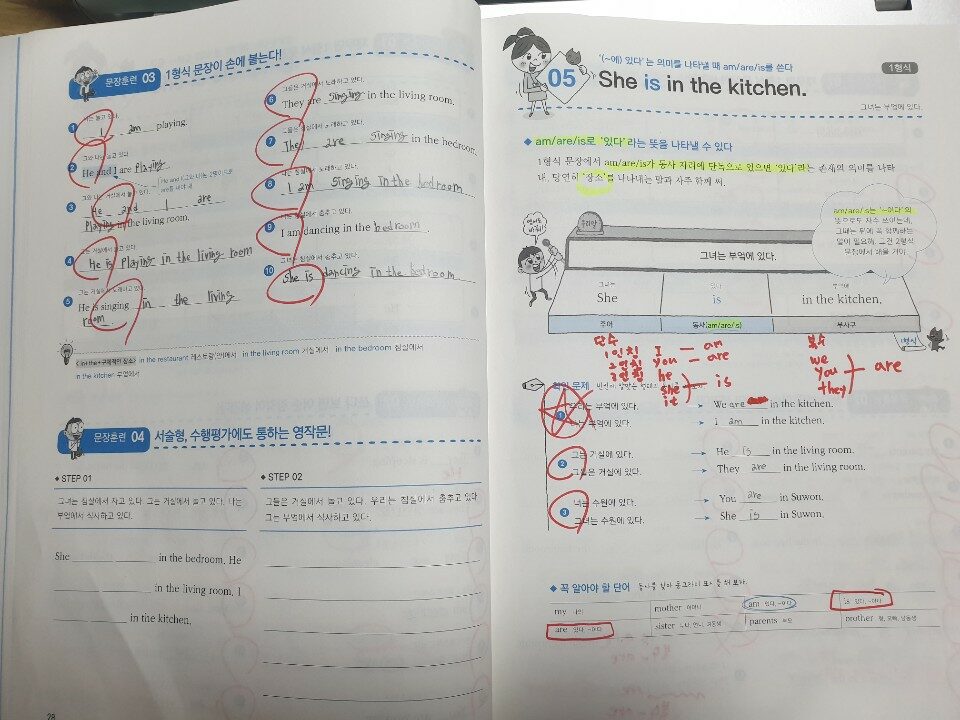 문장훈련 03 1형식 문장이 손에 붙는다!
1 I am playing.
2 He and I are playing.
3 He and I are
playing in the living room.
4 He is playing in the living room
5 He is singing in the living
room
6 They are singing in the living room.
7 They are singing in the bedroom.
8 I am singing in the bedroom
9 I am dancing in the bedroom
10 She is dancing in the bedroom
in the restaurant 레스토랑 안에서 in the living room 거실에서 in the bedroom 침실에서
in the kitchen 부엌에서
문장훈련 04 서술형, 수행평가에도 통하는 영작문!
◆ STEP 01
그녀는 침실에서 자고 있다. 그는 거실에서 놀고 있다. 나는
부엌에서 식사하고 있다.
She in the bedroom. He
in the living room. I
in the kitchen.
◆ STEP 02
그들은 거실에서 놀고 있다. 우리는 침실에서 춤추고 있다.
그는 부엌에서 식사하고 있다.
28
05
'(~에) 있다'는 의미를 나타낼 때 am/are/is를 쓴다
1형식
She is in the kitchen.
그녀는 부엌에 있다.
◆ am/are/is로 '있다'라는 뜻을 나타낼 수 있다
1형식 문장에서 am/are/is가 동사 자리에 단독으로 있으면 '있다'라는 존재의 의미를 나타
내. 당연히 '장소'를 나타내는 말과 자주 함께 써.
am/are/is는 '~이다'의
뜻으로도 자주 쓰이는데,
그때는 뒤에 꼭 함께하는
말이 필요해. 그건 2형식
우리말
그녀는 부엌에 있다.
그녀는 있다 부엌에
She is in the kitchen.
주어 동사(am/are/is) 부사구
1형식
단수
1인칭 I — am
2인칭 you — are
3인칭 he
she is
it
복수
we
you are
they
확인 문제
1 우리는 부엌에 있다. → We are in the kitchen.
나는 부엌에 있다. → I am in the kitchen.
2 그는 거실에 있다. → He is in the living room.
그들은 거실에 있다. → They are in the living room.
3 너는 수원에 있다. → You are in Suwon.
그녀는 수원에 있다. → She is in Suwon.
◆ 꼭 알아야 할 단어
my 나의 mother 어머니 am 있다, ~이다 is 있다, ~이다
are 있다, ~이다 sister 누나, 언니, 여동생 parents 부모 brother 형, 오빠, 남동생